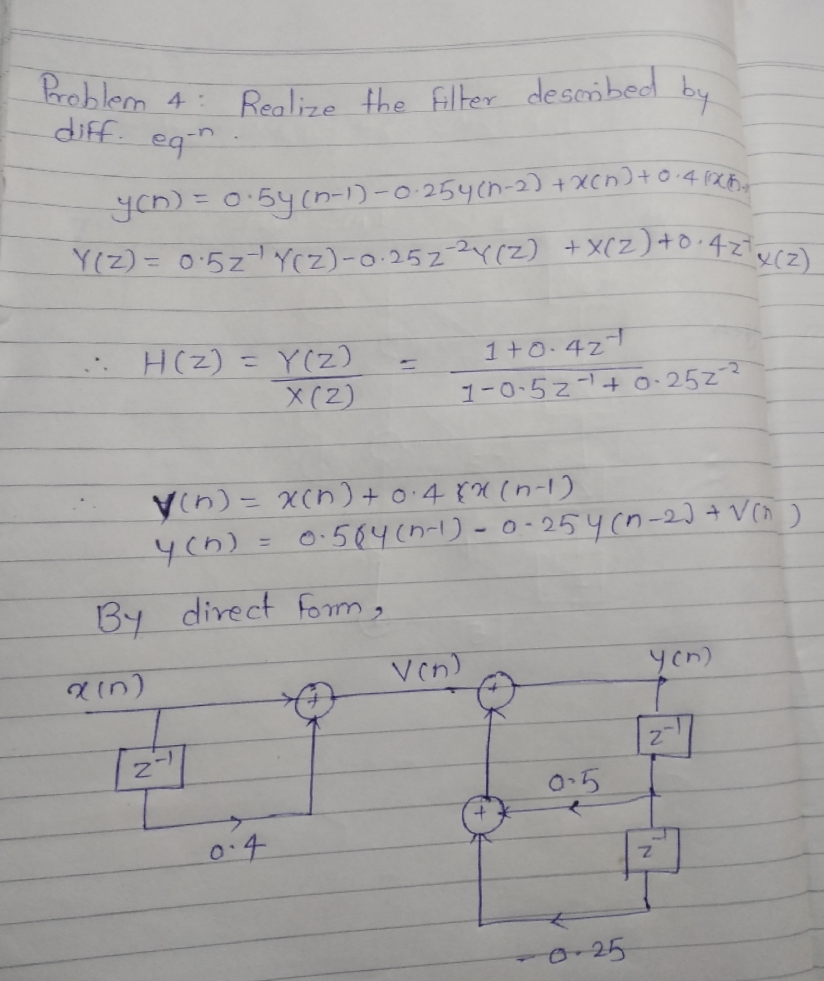 Problem 4: Realize the filter described by
diff. eq-n.
y(n) = 0.5y(n-1) - 0.25y(n-2) + x(n) + 0.4
Y(Z) = 0.5z⁻¹ Y(Z) - 0.25z⁻² Y(Z) + X(Z) + 0.4z⁻¹ X(Z)
∴ H(Z) = Y(Z) / X(Z) = 1 + 0.4z⁻¹ / 1 - 0.5z⁻¹ + 0.25z⁻²
∴ V(n) = x(n) + 0.4 x(n-1)
y(n) = 0.5 y(n-1) - 0.25 y(n-2) + V(n)
By direct form,
x(n) + V(n) + y(n)
z⁻¹ z⁻¹
0.5
+
0.4 z⁻¹
- 0.25